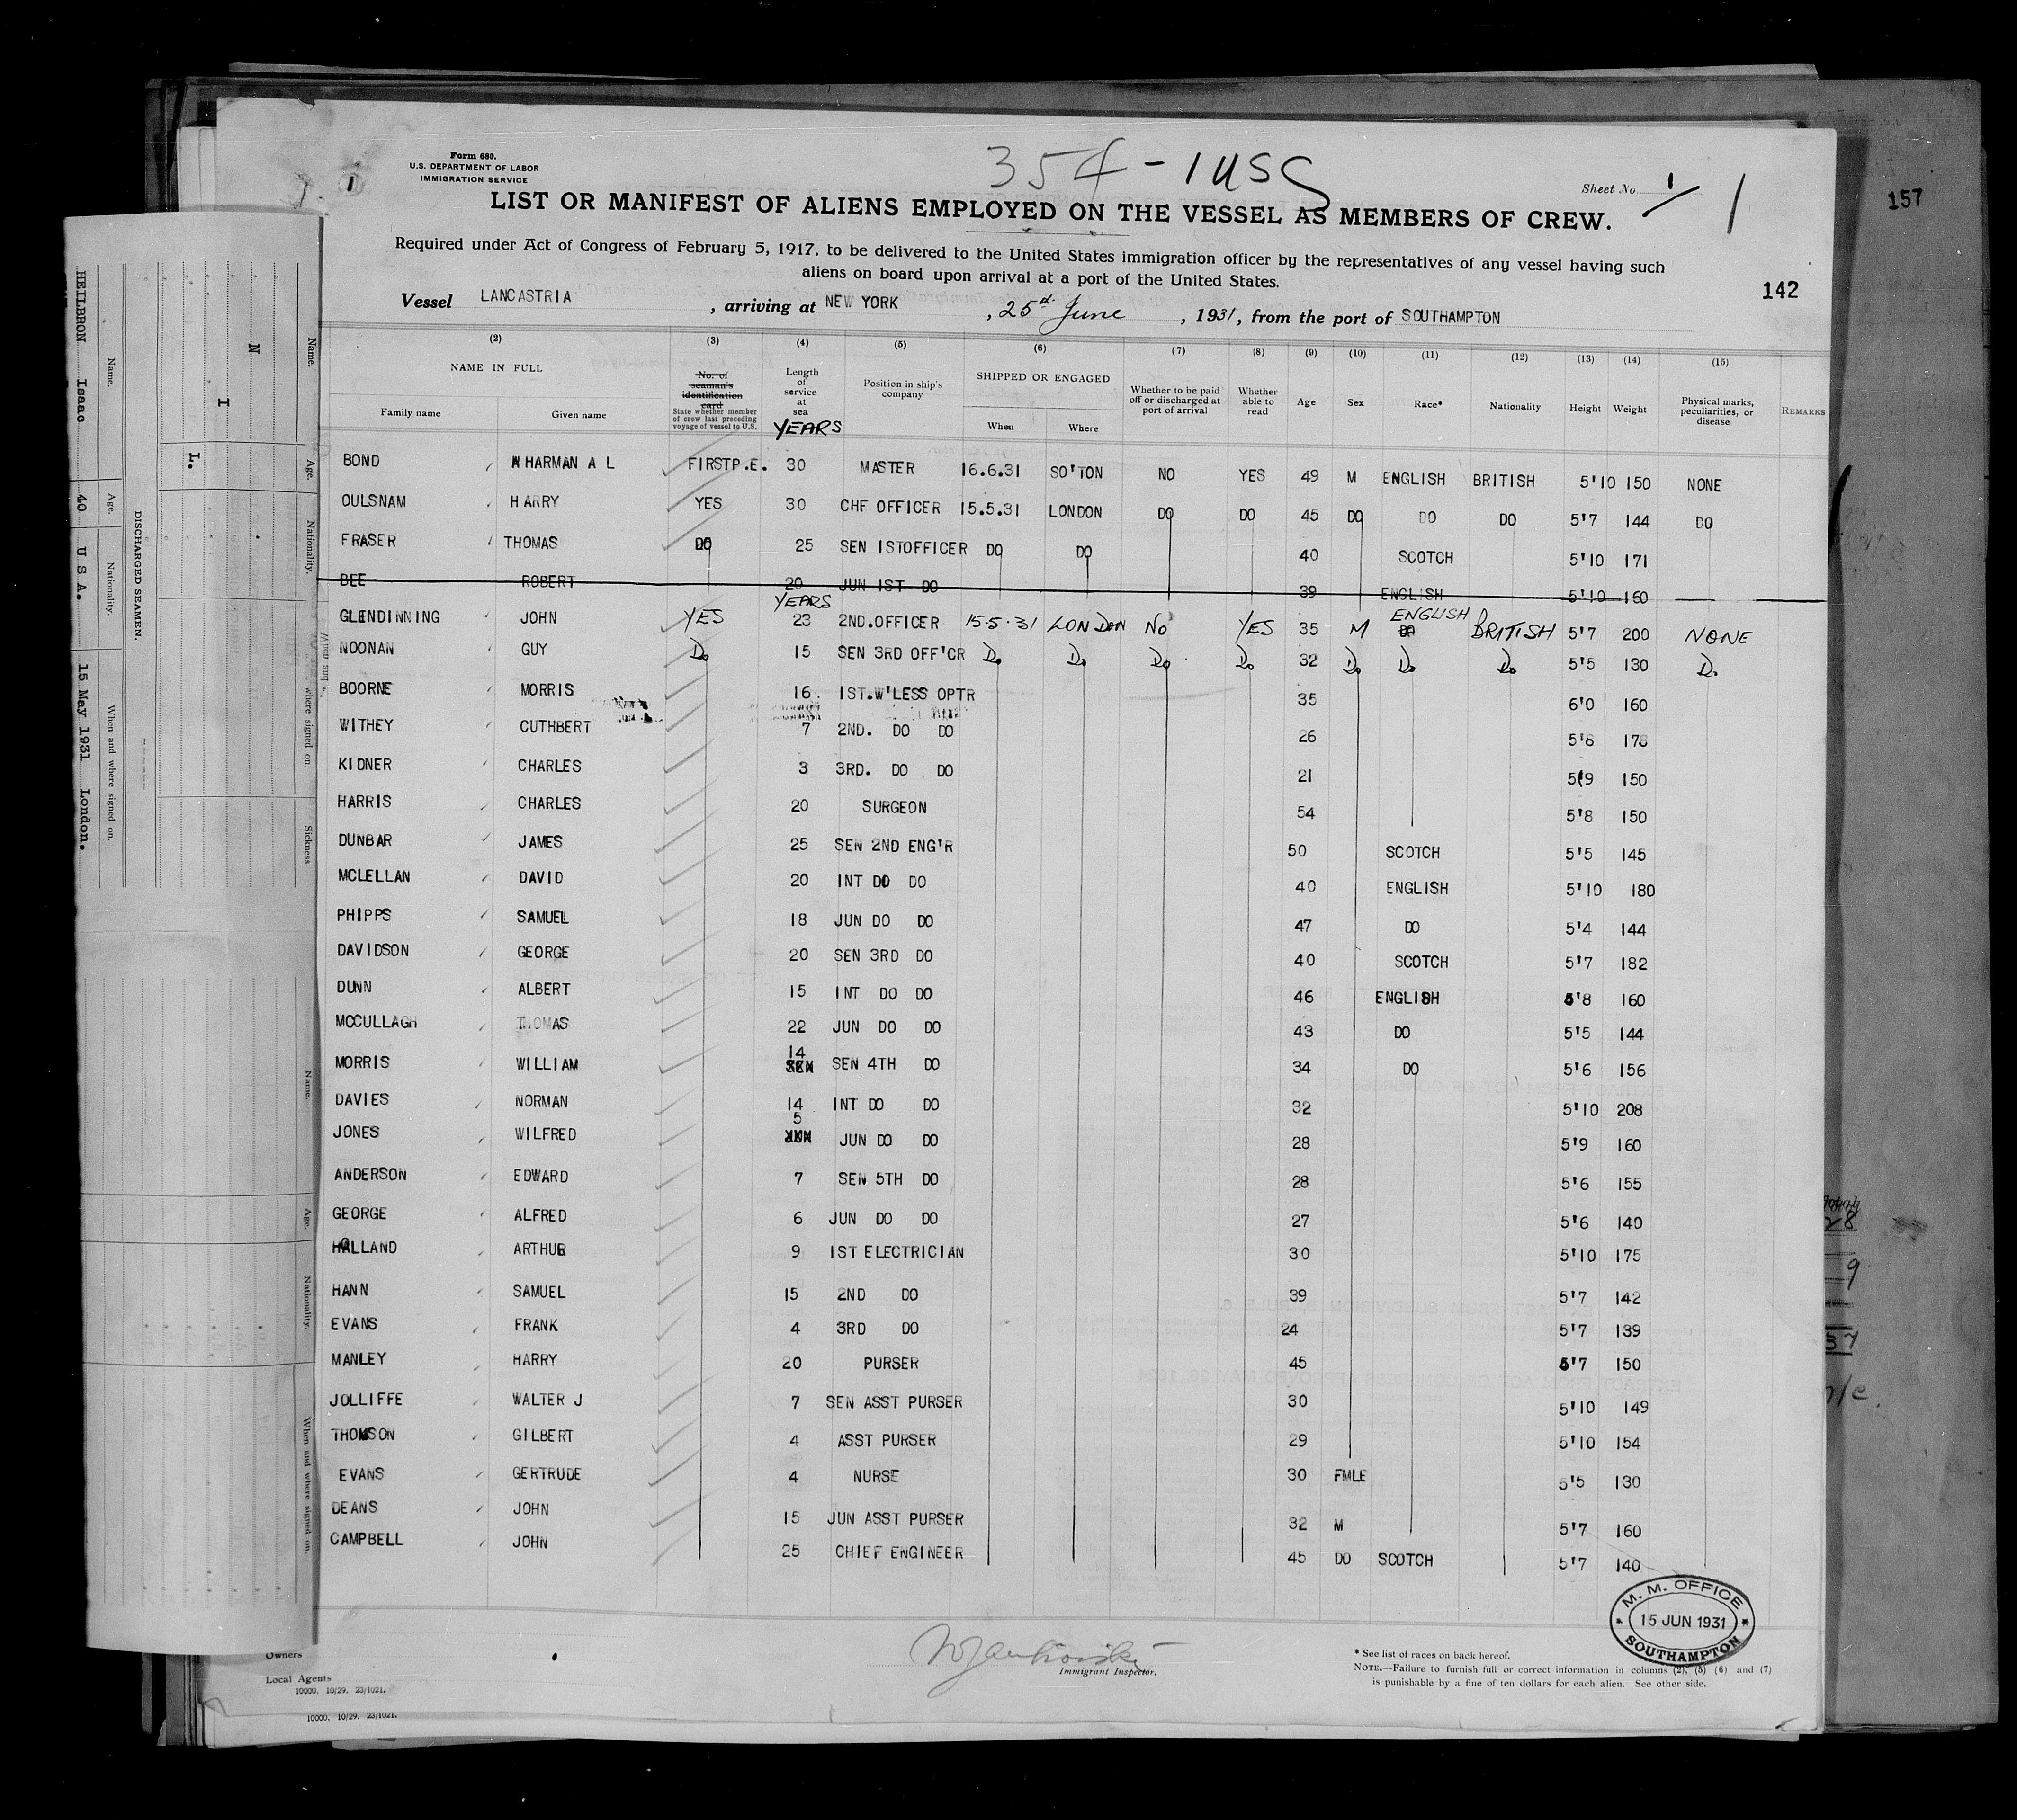 Form 680.
U.S. DEPARTMENT OF LABOR
IMMIGRATION SERVICE
1
354 - 1 USC
Sheet No 1
1
157
LIST OR MANIFEST OF ALIENS EMPLOYED ON THE VESSEL AS MEMBERS OF CREW.
Required under Act of Congress of February 5, 1917, to be delivered to the United States immigration officer by the representatives of any vessel having such
aliens on board upon arrival at a port of the United States.
142
Vessel LANCASTRIA , arriving at NEW YORK , 25d. June , 1931, from the port of SOUTHAMPTON
(2) (3) (4) (5) (6) (7) (8) (9) (10) (11) (12) (13) (14) (15)
NAME IN FULL Family name Given name
No. of seaman's identification card State whether member of crew last preceding voyage of vessel to U.S.
Length of service at sea YEARS
Position in ship's company
SHIPPED OR ENGAGED When Where
Whether to be paid off or discharged at port of arrival
Whether able to read
Age Sex Race* Nationality Height Weight
Physical marks, peculiarities, or disease
REMARKS
BOND WHARMAN A L FIRSTP.E. 30 MASTER 16.6.31 SO'TON NO YES 49 M ENGLISH BRITISH 5'10 150 NONE
OULSNAM HARRY YES 30 CHF OFFICER 15.5.31 LONDON DO DO 45 DO DO DO 5'7 144 DO
FRASER THOMAS DO 25 SEN 1STOFFICER DO DO 40 SCOTCH 5'10 171
BEE ROBERT 20 JUN 1ST DO 39 ENGLISH 5'10 160
YEARS
GLENDINNING JOHN YES 23 2ND.OFFICER 15.5.31 LONDON NO YES 35 M ENGLISH BRITISH 5'7 200 NONE
NOONAN GUY Do 15 SEN 3RD OFF'CR Do Do Do Do 32 Do Do Do 5'5 130 Do
BOORNE MORRIS 16 1ST.W'LESS OPTR 35 6'0 160
WITHEY CUTHBERT 7 2ND. DO DO 26 5'8 178
KIDNER CHARLES 3 3RD. DO DO 21 5'9 150
HARRIS CHARLES 20 SURGEON 54 5'8 150
DUNBAR JAMES 25 SEN 2ND ENG'R 50 SCOTCH 5'5 145
MCLELLAN DAVID 20 INT DO DO 40 ENGLISH 5'10 180
PHIPPS SAMUEL 18 JUN DO DO 47 DO 5'4 144
DAVIDSON GEORGE 20 SEN 3RD DO 40 SCOTCH 5'7 182
DUNN ALBERT 15 INT DO DO 46 ENGLISH 5'8 160
MCCULLAGH THOMAS 22 JUN DO DO 43 DO 5'5 144
MORRIS WILLIAM 14 SEN 4TH DO 34 DO 5'6 156
DAVIES NORMAN 14 INT DO DO 32 5'10 208
JONES WILFRED 5 JUN DO DO 28 5'9 160
ANDERSON EDWARD 7 SEN 5TH DO 28 5'6 155
GEORGE ALFRED 6 JUN DO DO 27 5'6 140
HOLLAND ARTHUR 9 1ST ELECTRICIAN 30 5'10 175
HANN SAMUEL 15 2ND DO 39 5'7 142
EVANS FRANK 4 3RD DO 24 5'7 139
MANLEY HARRY 20 PURSER 45 5'7 150
JOLLIFFE WALTER J 7 SEN ASST PURSER 30 5'10 149
THOMSON GILBERT 4 ASST PURSER 29 5'10 154
EVANS GERTRUDE 4 NURSE 30 FMLE 5'5 130
DEANS JOHN 15 JUN ASST PURSER 32 M 5'7 160
CAMPBELL JOHN 25 CHIEF ENGINEER 45 DO SCOTCH 5'7 140
M. M. OFFICE
15 JUN 1931
SOUTHAMPTON
Immigrant Inspector.
* See list of races on back hereof.
NOTE.—Failure to furnish full or correct information in columns (2), (5) (6) and (7)
is punishable by a fine of ten dollars for each alien. See other side.
Owners
Local Agents
10000. 10/29. 23/1021.
10000. 10/29. 23/1021.
DISCHARGED SEAMEN.
Name. Age. Nationality. When and where signed on.
HEILBRON Isaac 40 U S A. 15 May 1931 London.
Name. Age. Nationality. where signed on. Sickness
N I L.
Name. Age. Nationality. When and where signed on.
28
9
37